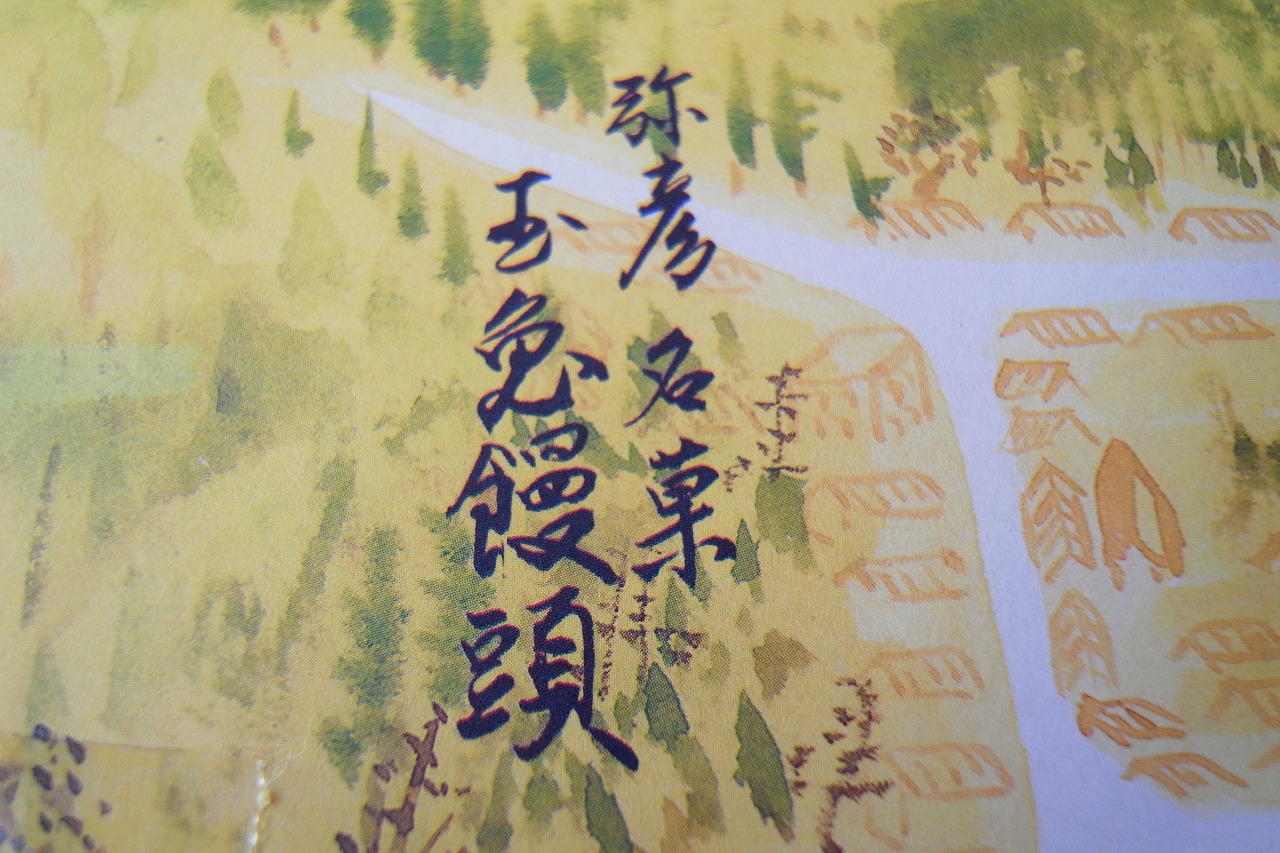 弥彦名菓
玉兔饅頭